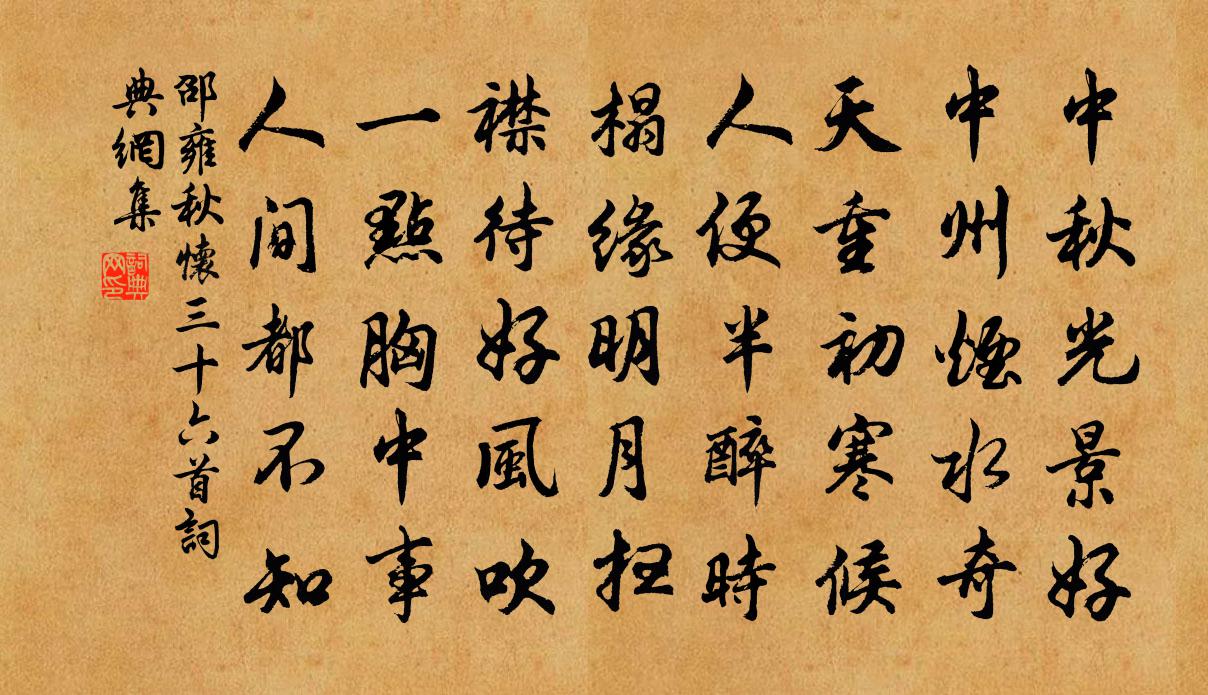 中秋光景好
中州煙水奇
天重初寒候
人便半醉時
榻緣明月扭
襟待好風吹
一點胸中事
人間都不知
邵雍秋懷三十六首詞
典網集
詞典
网印